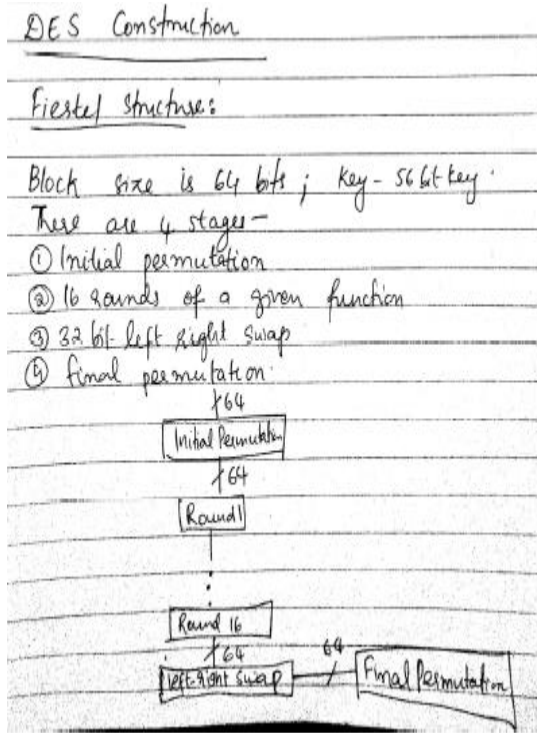 DES Construction
Fiestel Structure:
Block size is 64 bits; key - 56 bit key.
There are 4 stages -
① Initial permutation
② 16 rounds of a given function
③ 32 bit left right swap
④ final permutation.
64
Initial Permutation
64
Round 1
Round 16
64
64
left-right swap
Final Permutation